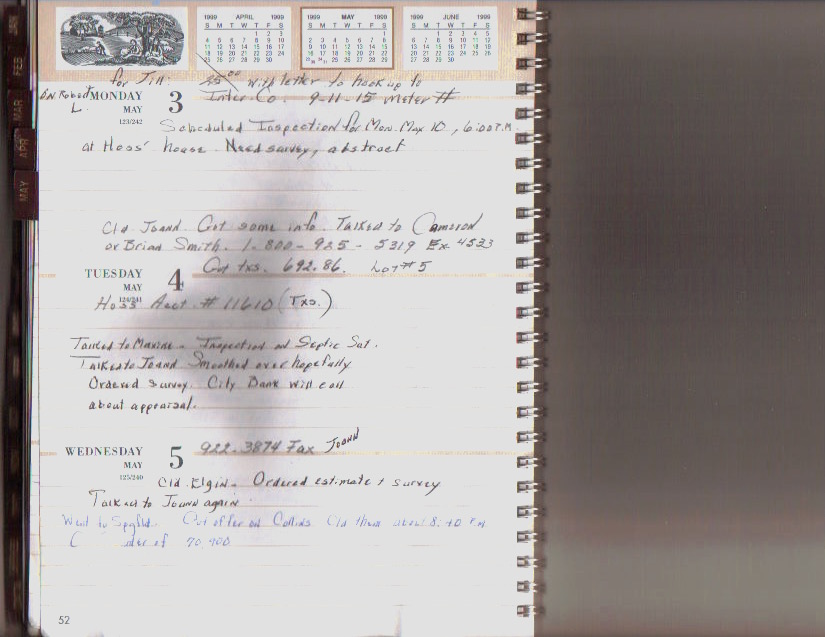 1999 APRIL 1999
S M T W T F S
1 2 3
4 5 6 7 8 9 10
11 12 13 14 15 16 17
18 19 20 21 22 23 24
25 26 27 28 29 30
1999 MAY 1999
S M T W T F S
1
2 3 4 5 6 7 8
9 10 11 12 13 14 15
16 17 18 19 20 21 22
23/30 24/31 25 26 27 28 29
1999 JUNE 1999
S M T W T F S
1 2 3 4 5
6 7 8 9 10 11 12
13 14 15 16 17 18 19
20 21 22 23 24 25 26
27 28 29 30
FEB
MAR
APR
MAY
for Jill: 25.00 with letter to hook up to
MONDAY 3 Inter Co. 9-11-15 meter #
L.
MAY
123/242
Scheduled Inspection for Mon. May 10, 6:00 P.M.
at Hoss' house Need survey, abstract
Cld Joann. Got some info. Talked to Cameron
or Brian Smith. 1-800-925-5319 Ex 4533
Got txs. 692.86. Lot #5
TUESDAY 4
MAY
124/241
Hoss Acct # 11610 (Txs.)
Talked to Maxine - Inspection on Septic Sat.
Talked to Joann Smoothed over hopefully
Ordered survey. City Bank will call
about appraisal.
WEDNESDAY 5 922-3874 Fax Joann
MAY
125/240
Cld. Elgin - Ordered estimate + survey
Talked to Joann again
Went to Spgfld. Out offer on Collins Cld them about 8:40 P.M.
of 70,900
52